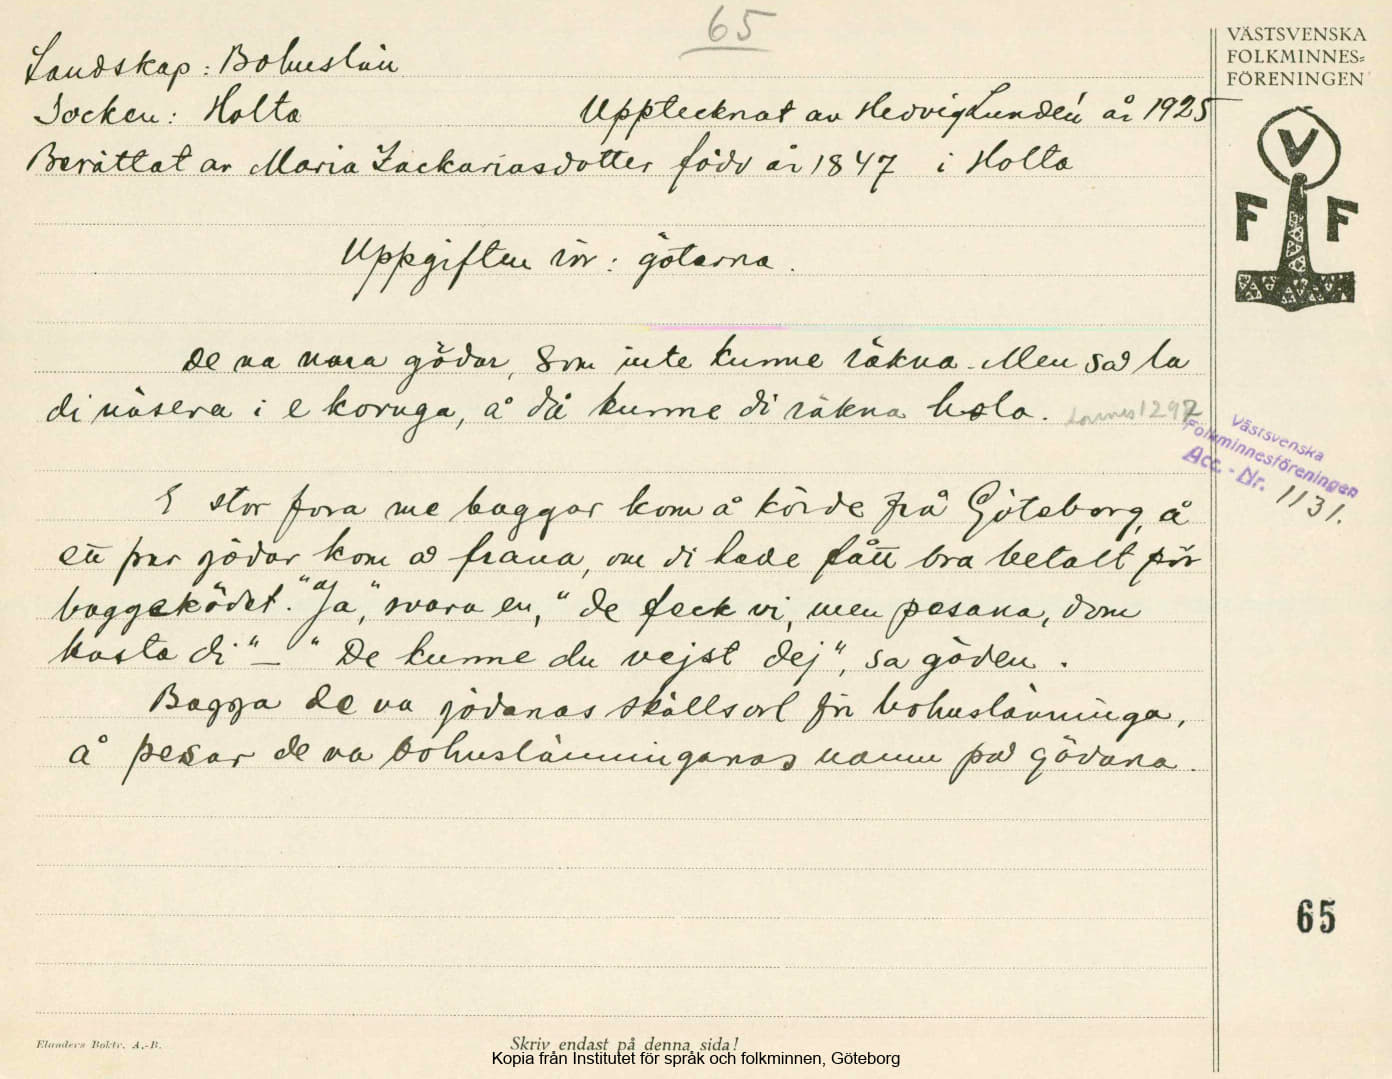 65
VÄSTSVENSKA
FOLKMINNES=
FÖRENINGEN
V
F F
Landskap: Bohuslän
Socken: Holta Upptecknat av Hedvig Lundén år 1925
Berättat av Maria Zackariasdotter född år 1847 i Holta
Uppgiften rör: götarna.
De va nara gödar, som inte kunne räkna. Men så la
di näsera i e koruga, å då kunne di räkna hola.
1297
Västsvenska
Folkminnesföreningen
Acc.-Nr. 1131.
E stor fora me baggar kom å körde frå Göteborg, å
ett par gödar kom å fraua, om di hade fått bra betalt för
baggeködet. "Ja", svara en, "de feck vi, men pesana, dom
kasta di" — "De kunne du vejst dej", sa göden.
Bagga de va gödanas skällsorl för bohuslänninga,
å pesar de va bohuslänninganas namn på gödana.
65
Elanders Boktr. A.-B.
Skriv endast på denna sida!
Kopia från Institutet för språk och folkminnen, Göteborg